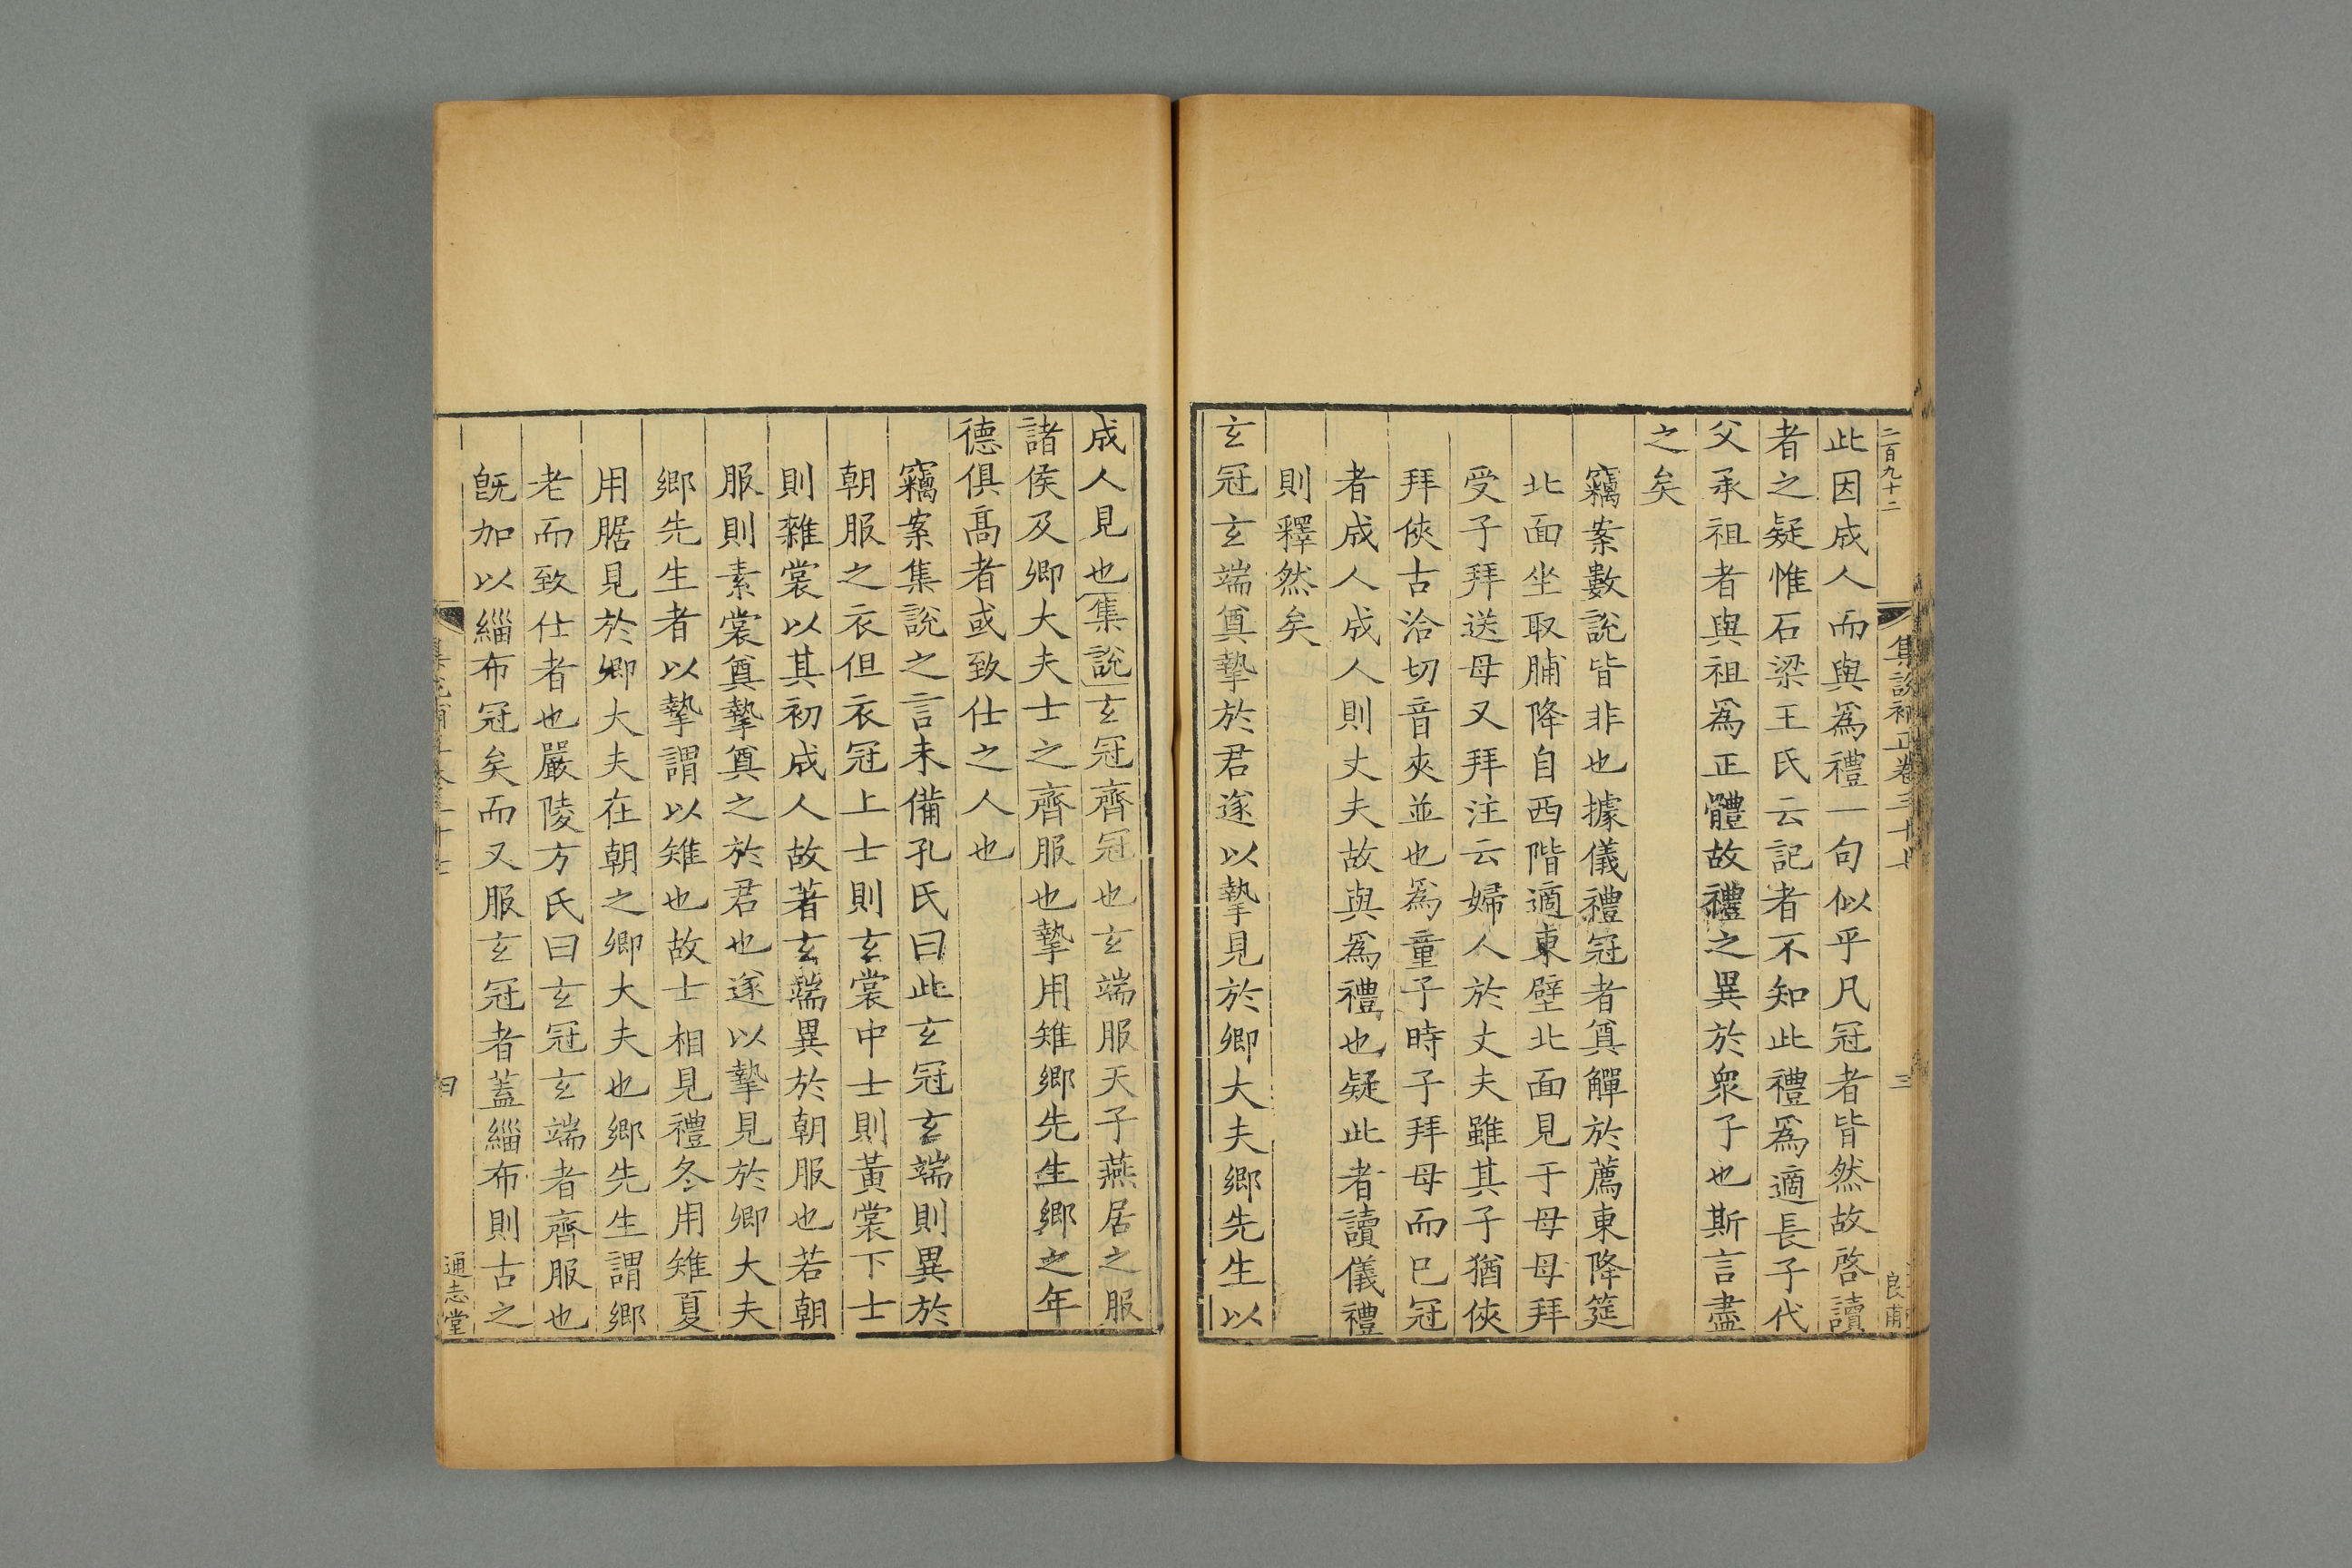 二百九十二
集說補正卷三十七
三
良甫
此因成人而與爲禮一句似乎凡冠者皆然故啓讀
者之疑惟石梁王氏云記者不知此禮爲適長子代
父承祖者與祖爲正體故禮之異於衆子也斯言盡
之矣
竊案數說皆非也據儀禮冠者奠觶於薦東降筵
北面坐取脯降自西階適東壁北面見于母母拜
受子拜送母又拜注云婦人於丈夫雖其子猶俠
拜俠古洽切音夾並也爲童子時子拜母而已冠
者成人成人則丈夫故與爲禮也疑此者讀儀禮
則釋然矣
玄冠玄端奠摯於君遂以摯見於卿大夫鄉先生以
成人見也集說玄冠齊冠也玄端服天子燕居之服
諸侯及卿大夫士之齊服也摯用雉鄉先生鄉之年
德俱高者或致仕之人也
竊案集說之言未備孔氏曰此玄冠玄端則異於
朝服之衣但衣冠上士則玄裳中士則黃裳下士
則雜裳以其初成人故著玄端異於朝服也若朝
服則素裳奠摯奠之於君也遂以摯見於卿大夫
鄉先生者以摯謂以雉也故士相見禮冬用雉夏
用腒見於卿大夫在朝之卿大夫也鄉先生謂鄉
老而致仕者也嚴陵方氏曰玄冠玄端者齊服也
旣加以緇布冠矣而又服玄冠者蓋緇布則古之
通志堂